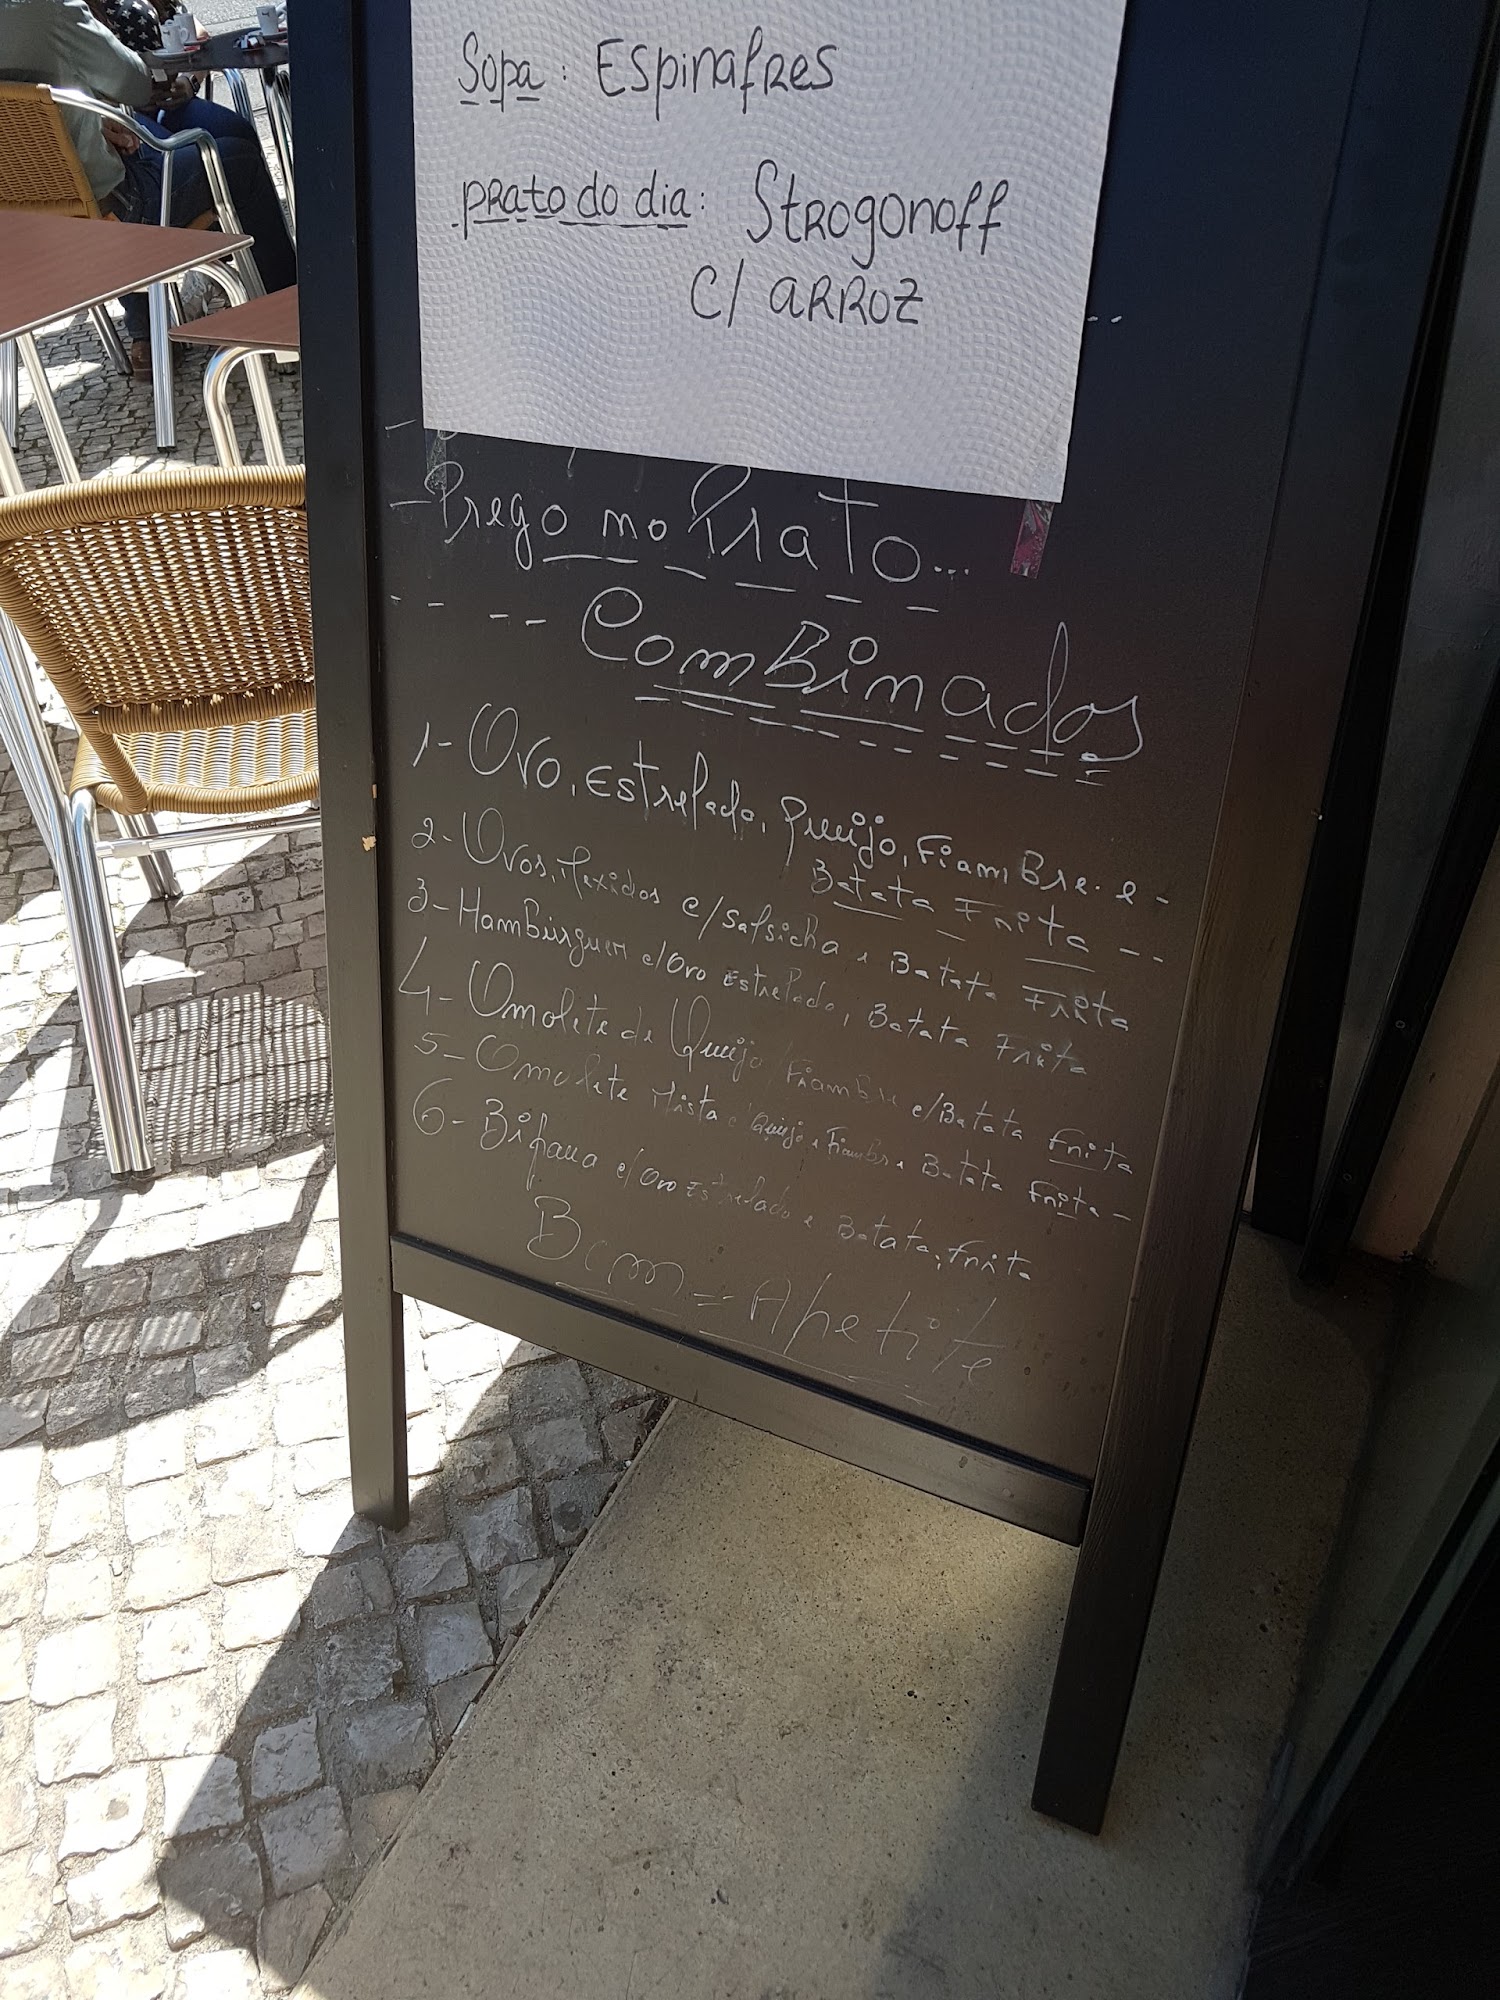 Sopa: Espinafres
prato do dia: Strogonoff
c/ arroz
- Prego no Prato...
Combinados
1- Ovo, Estrelado, Queijo, Fiambre. e -
Batata Frita --
2- Ovos, Mexidos c/ Salsicha e Batata Frita
3- Hambúrguer c/ Ovo Estrelado, Batata Frita
4- Omolete de Queijo Fiambre c/ Batata Frita
5- Omolete Mista Queijo e Fiambre Batata Frita -
6- Bifana c/ Ovo Estrelado e Batata, Frita
Bom = Apetite